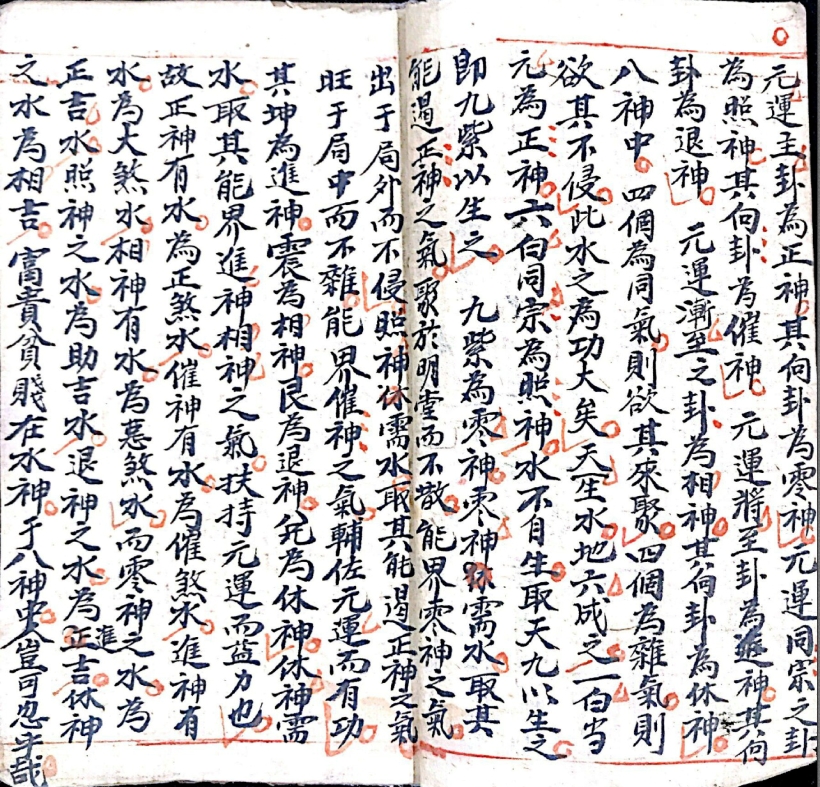 元運主卦為正神其向卦為零神元運同宗之卦
為照神其向卦為催神 元運將至卦為進神其向
卦為退神 元運漸至之卦為相神其向卦為休神
八神中四個為同氣則欲其來聚四個為雜氣則
欲其不侵此水之為功大矣天一生水地六成之一白当
元為正神六白同宗為照神水不自生取天九以生之
即九紫以生之 九紫為零神零神休需水取其
能遏正神之氣聚於明堂而不散能界零神之氣
出于局外而不侵照神休需水取其能遏正神之氣
旺于局中而不雜能界催神之氣輔佐元運而有功
其坤為進神震為相神艮為退神兌為休神休神需
水取其能界進神相神之氣扶持元運而益力也
故正神有水為正煞水催神有水為催煞水進神有
水為大煞水相神有水為惡煞水而零神之水為
正吉水照神之水為助吉水退神之水為進吉休神
之水為相吉富貴貧賤在水神于八神中豈可忽乎哉